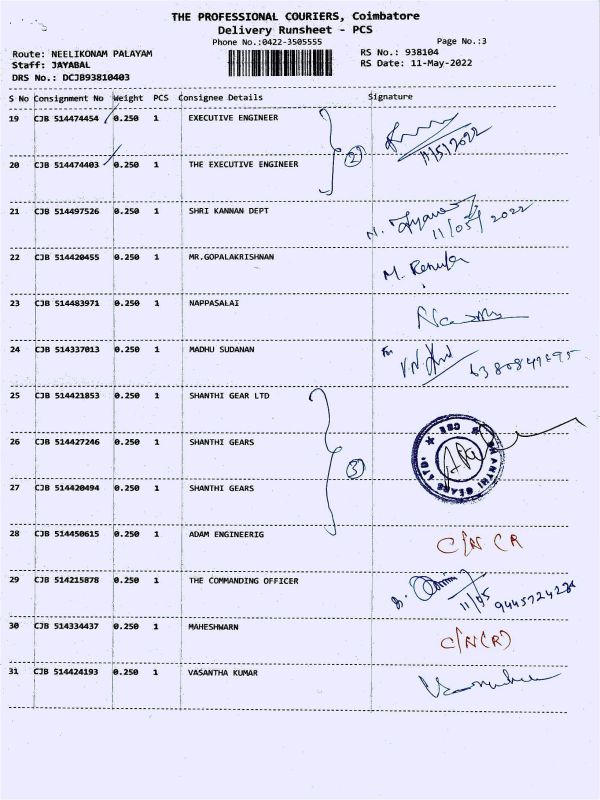 THE PROFESSIONAL COURIERS, Coimbatore
Delivery Runsheet - PCS
Phone No.:0422-3505555 Page No.:3
Route: NEELIKONAM PALAYAM RS No.: 938104
Staff: JAYABAL RS Date: 11-May-2022
DRS No.: DCJB93810403
S No Consignment No Weight PCS Consignee Details Signature
19 CJB 514474454 0.250 1 EXECUTIVE ENGINEER
11/5/2022
2
20 CJB 514474403 0.250 1 THE EXECUTIVE ENGINEER
21 CJB 514497526 0.250 1 SHRI KANNAN DEPT
11/05/2022
22 CJB 514420455 0.250 1 MR.GOPALAKRISHNAN M. Renuka
23 CJB 514483971 0.250 1 NAPPASALAI
24 CJB 514337013 0.250 1 MADHU SUDANAN For
25 CJB 514421853 0.250 1 SHANTHI GEAR LTD
26 CJB 514427246 0.250 1 SHANTHI GEARS
SHANTHI GEARS LTD. ★ CBE ★
3
27 CJB 514420494 0.250 1 SHANTHI GEARS
28 CJB 514450615 0.250 1 ADAM ENGINEERIG C/N CR
29 CJB 514215878 0.250 1 THE COMMANDING OFFICER 11/05
30 CJB 514334437 0.250 1 MAHESHWARN C/N(R)
31 CJB 514424193 0.250 1 VASANTHA KUMAR